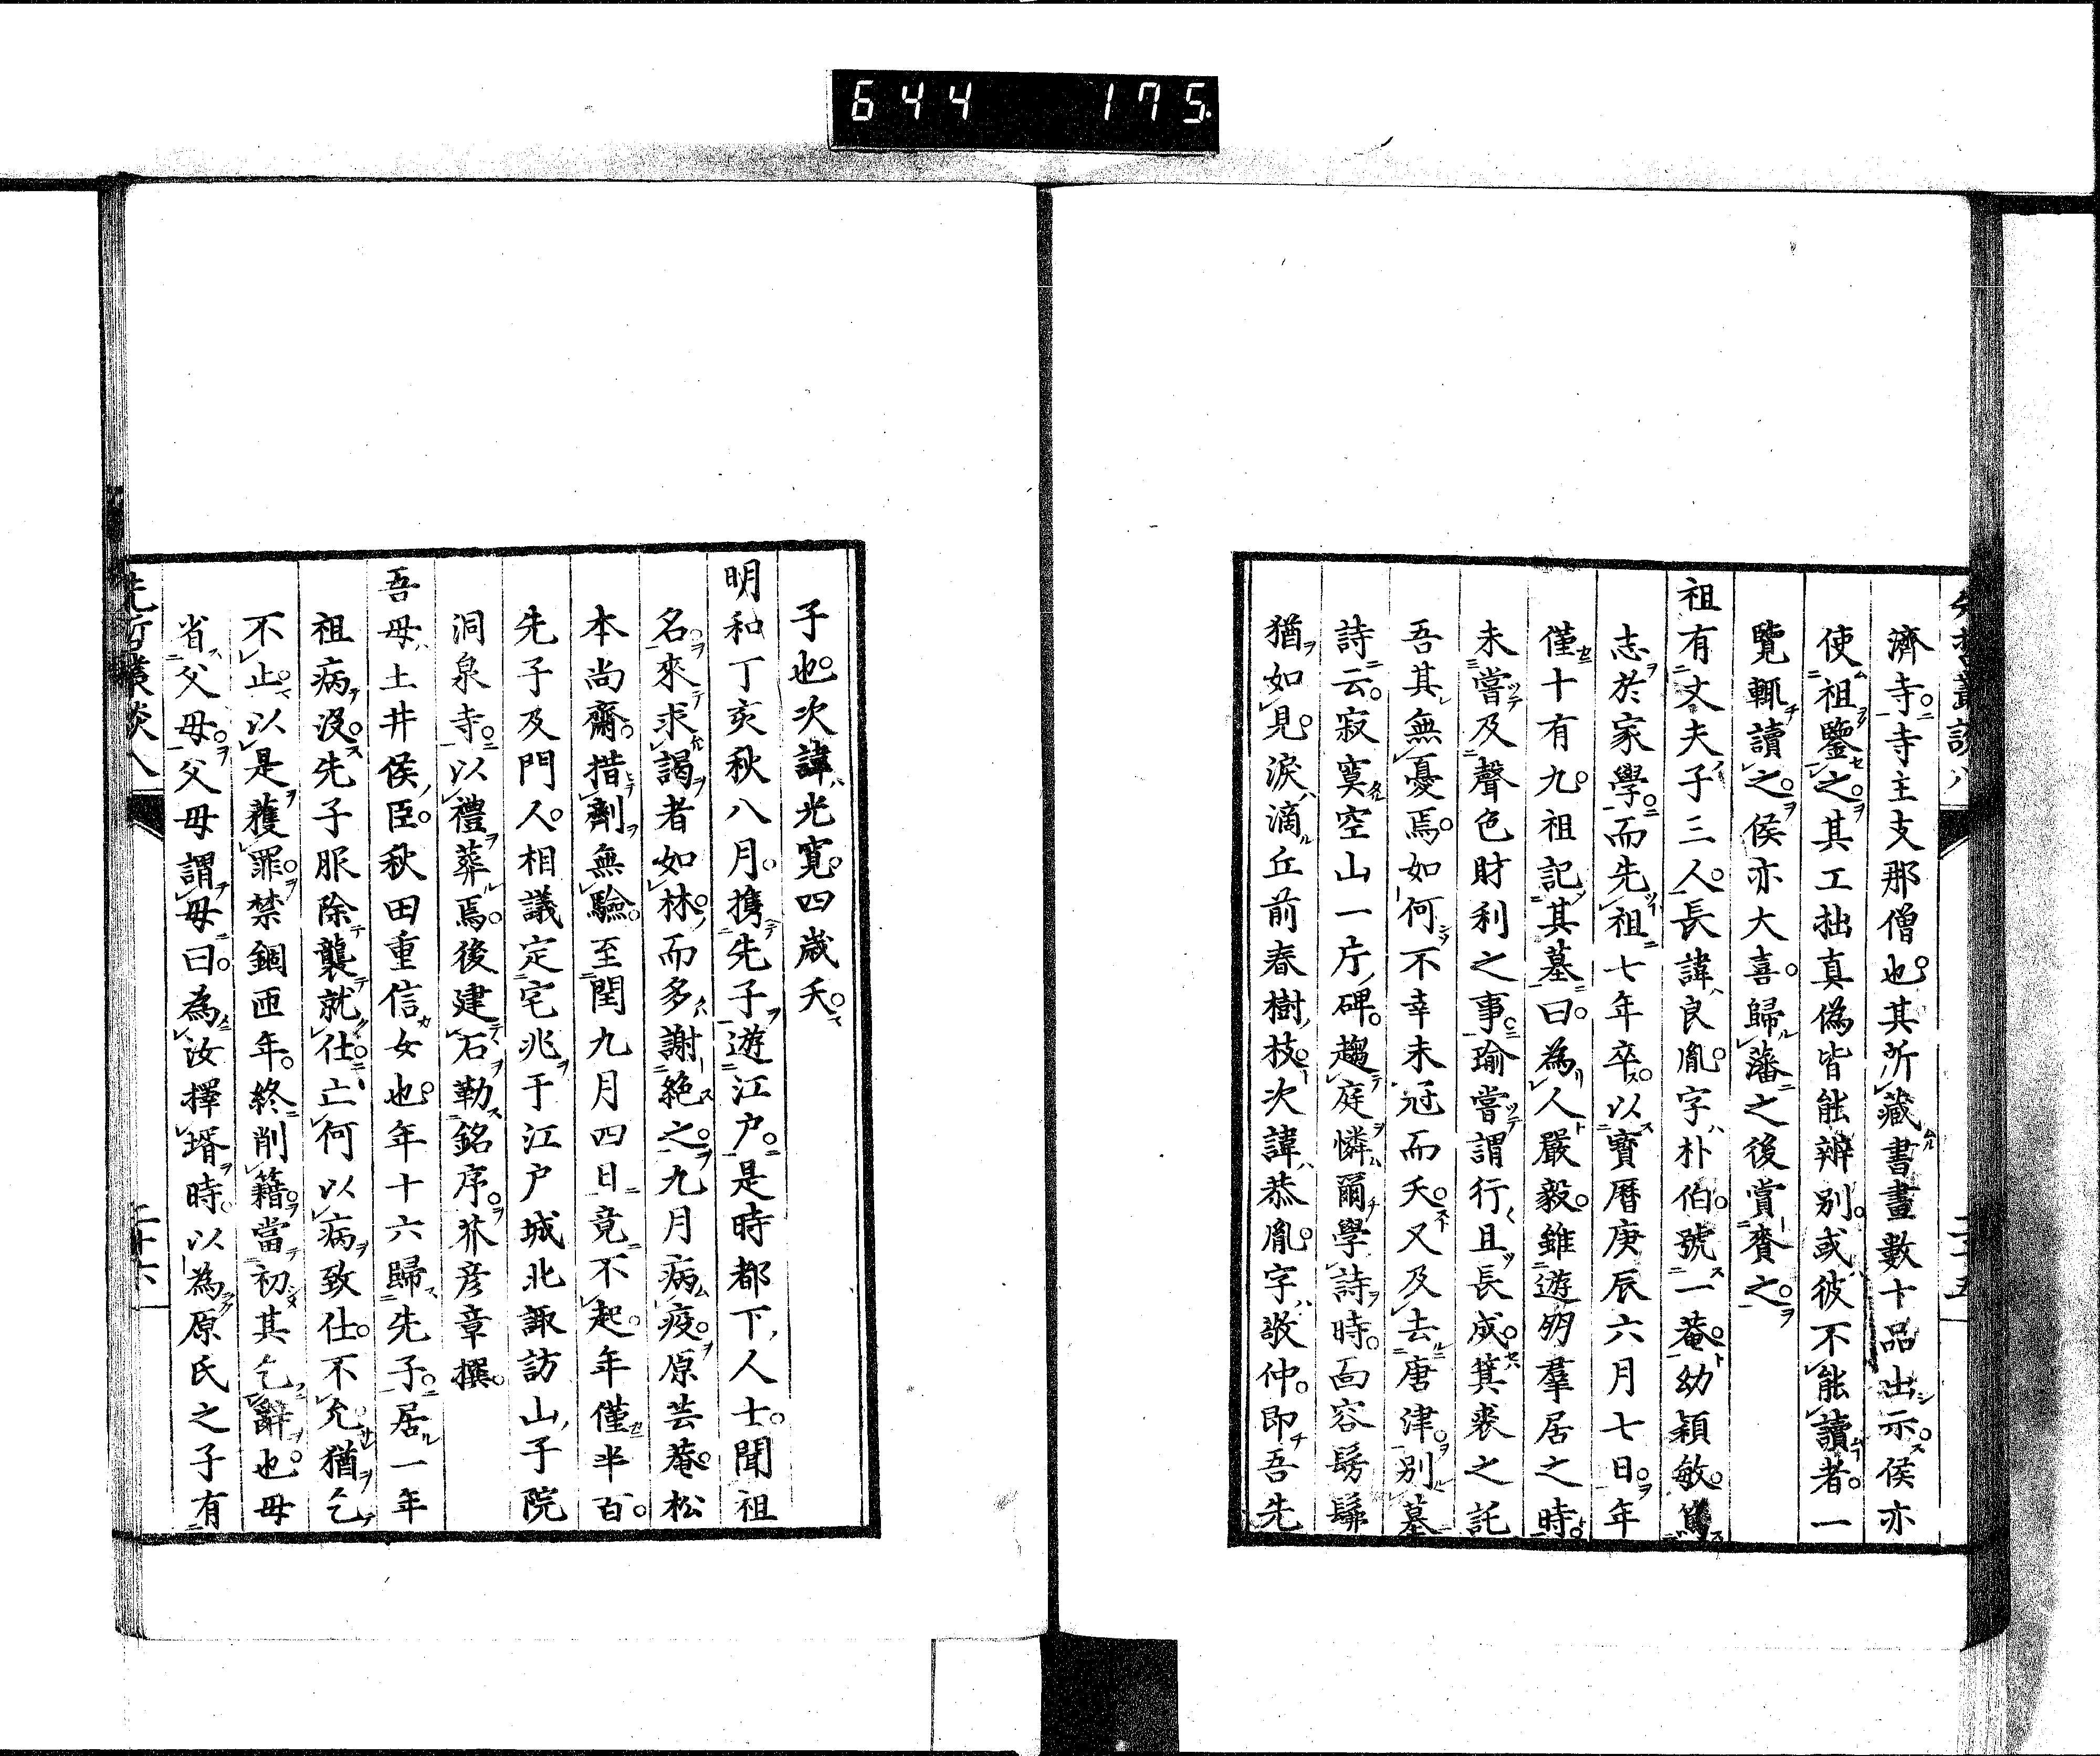 644 175.
濟寺寺主支那僧也其所藏書畫數十品出示侯亦
使祖鑒之其工拙真偽皆能辨別或彼不能讀者一
覽輒讀之侯亦大喜歸藩之後賞賚之
祖有丈夫子三人長諱良胤字朴伯號一菴幼穎敏篤
志於家學而先祖七年卒以寶曆庚辰六月七日年
僅十有九祖記其墓曰為人嚴毅雖遊朋羣居之時
未嘗及聲色財利之事瑜嘗謂行且長成箕裘之託
吾其無憂焉如何不幸未冠而夭又及去唐津別墓
詩云寂寞空山一片碑趨庭憐爾學詩時面容髣髴
猶如見淚滴丘前春樹枝次諱恭胤字敬仲即吾先
子也次諱光寬四歲夭
明和丁亥秋八月携先子遊江户是時都下人士聞祖
名來求謁者如林而多謝絕之九月病疫原芸菴松
本尚齋措劑無驗至閏九月四日竟不起年僅半百
先子及門人相議定宅兆于江户城北諏訪山子院
洞泉寺以禮葬焉後建石勒銘序芥彦章撰
吾母土井侯臣秋田重信女也年十六歸先子居一年
祖病没先子服除襲就仕亡何以病致仕不允猶乞
不止以是獲罪禁錮匝年終削籍當初其乞辭也母
省父母父母謂母曰為汝擇壻時以為原氏之子有
先哲叢談八